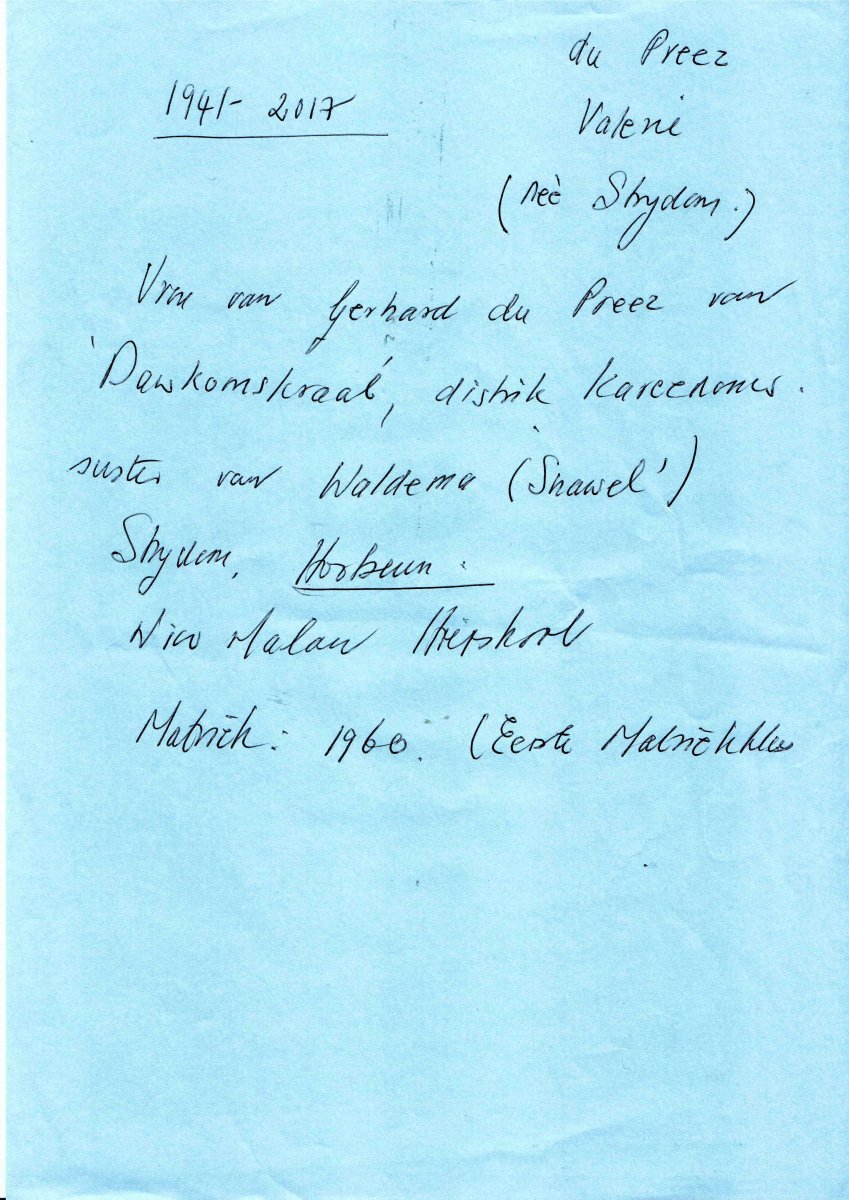 du Preez
1941-2017
Valerie
(neè Strydom.)
Vrou van Gerhard du Preez van
'Dawkomskraal', distrik Kareedouw.
suster van Waldemar ('Snawel')
Strydom,
Nico Malan Hoërskool
Matriek: 1960. (Eerste Matriekklas